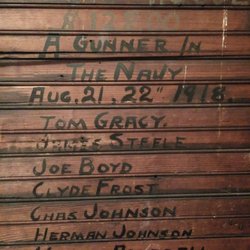 A GUNNER IN
THE NAVY
AUG. 21, 22" 1918.
TOM GRACY.
JAMES STEELE
JOE BOYD
CLYDE FROST
CHAS JOHNSON
HERMAN JOHNSON